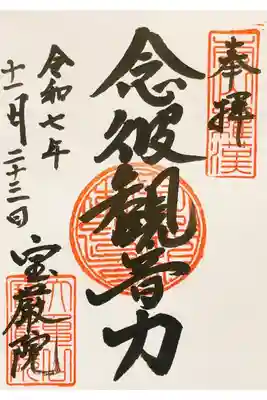 奉拝
念彼観音力
令和七年
十一月二十三日
宝厳院